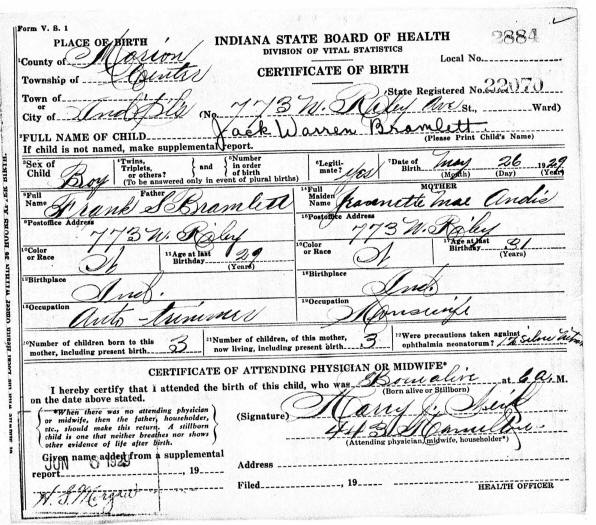 Form V. S. 1
PLACE OF BIRTH
INDIANA STATE BOARD OF HEALTH
DIVISION OF VITAL STATISTICS
CERTIFICATE OF BIRTH
Local No. 2884
County of Marion
Township of Center
State Registered No. 22070
Town of
or
City of Ind'pls (No. 773 W. Riley Ave St., Ward)
FULL NAME OF CHILD Jack Warren Bramlett
(Please Print Child's Name)
If child is not named, make supplemental report.
Sex of Child Boy
Twins, Triplets, or others? } and { Number in order of birth
(To be answered only in event of plural births)
Legitimate? Yes
Date of Birth May 26 1929
(Month) (Day) (Year)
Father
Full Name Frank S. Bramlett
MOTHER
Full Maiden Name Jeannette Mae Andis
Postoffice Address
773 W. Riley
Postoffice Address
773 W. Riley
Color or Race W
Age at last Birthday 29
(Years)
Color or Race W
Age at last Birthday 31
(Years)
Birthplace
Ind.
Birthplace
Ind.
Occupation
Auto-trimmer
Occupation
Housewife
Number of children born to this mother, including present birth 3
Number of children, of this mother, now living, including present birth 3
Were precautions taken against ophthalmia neonatorum? 1% silver
CERTIFICATE OF ATTENDING PHYSICIAN OR MIDWIFE*
I hereby certify that i attended the birth of this child, who was Born alive at 6 a. M.
(Born alive or Stillborn)
on the date above stated.
*When there was no attending physician
or midwife, then the father, householder,
etc., should make this return. A stillborn
child is one that neither breathes nor shows
other evidence of life after birth.
(Signature) Harry J.
443 Hamilton
(Attending physician, midwife, householder*)
Given name added from a supplemental
report JUN 6 1929, 19
Address
Filed , 19
HEALTH OFFICER